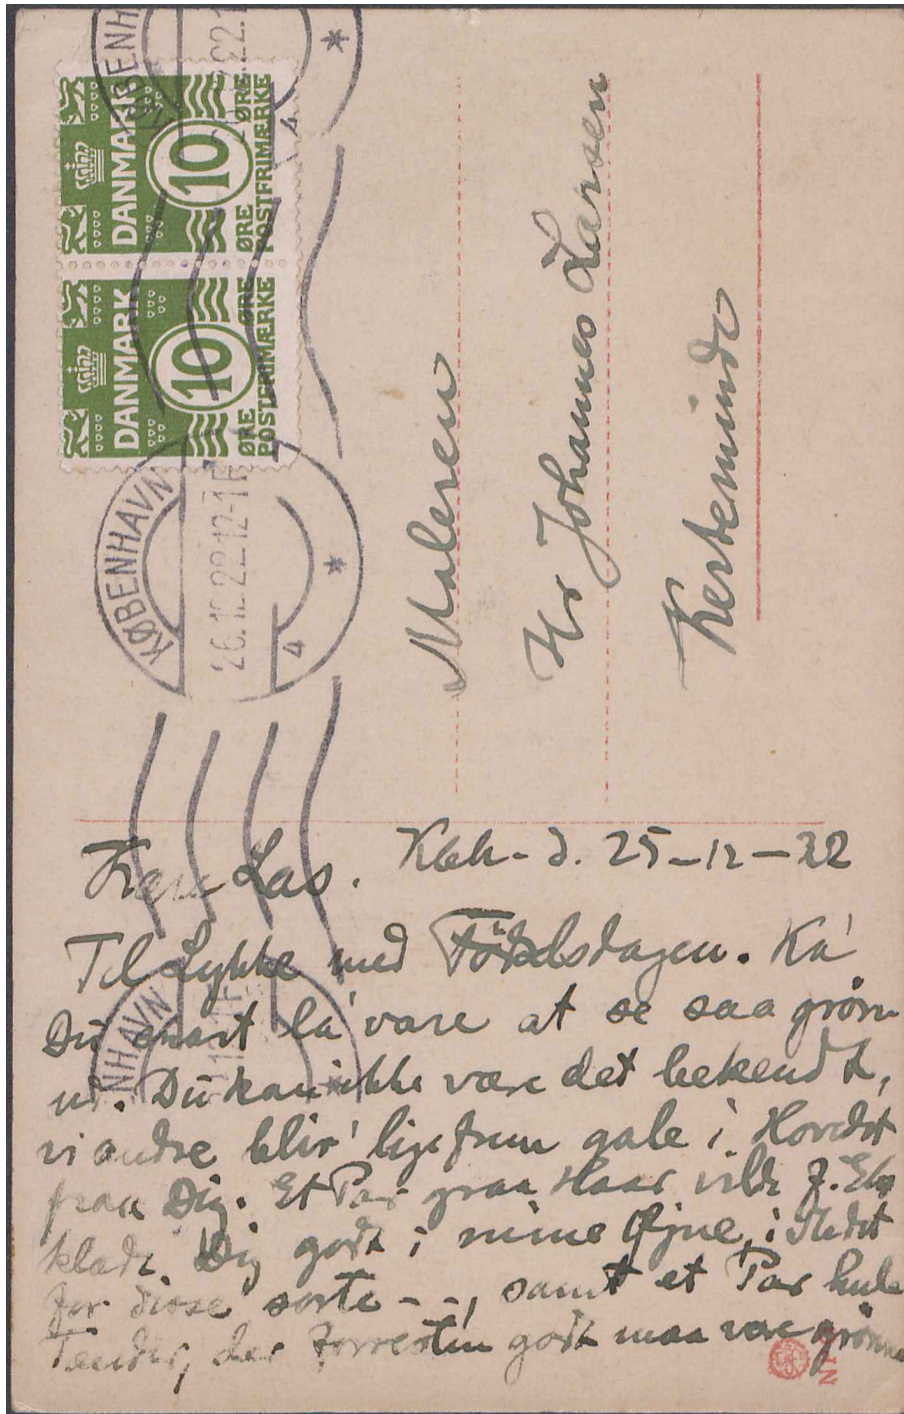 KØBENHAVN
DANMARK
10
ØRE ØRE
POSTFRIMÆRKE
DANMARK
10
ØRE ØRE
POSTFRIMÆRKE
KØBENHAVN
26.12.22.12-1
4
NHAVN
Maleren
Hr Johannes Larsen
Kerteminde
Kbh - d. 25-12-22
Kære Las.
Til Lykke med Födselsdagen. Ka'
Du snart la' være at se saa grøn
ud. Du kan ikke være det bekendt,
vi andre blir' ligefrem gale i Hovedet
paa Dig. Et Par graa Haar vilde f. Eks
klæde Dig godt i mine Øjne, i Stedet
for disse sorte - -, samt et Par hule
Tænder, der forresten godt maa være grønne